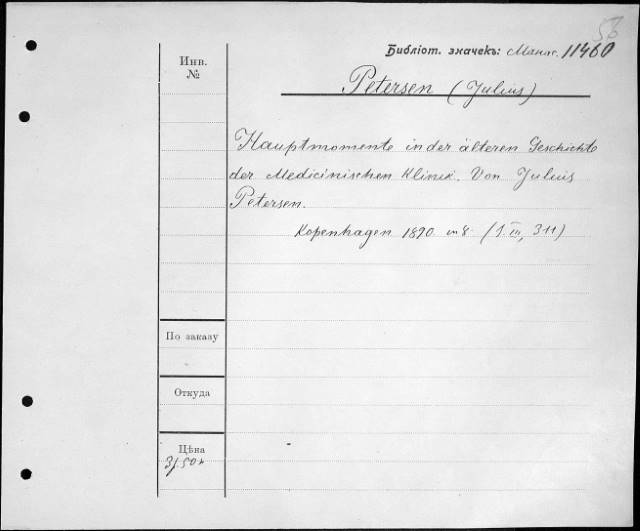 56
Библіот. значекъ: Манос. 11460
Инв.
№
Petersen (Julius)
Hauptmomente in der älteren Geschichte
der Medicinischen Klinik. Von Julius
Petersen.
Kopenhagen 1890 in 8. (1 III, 311)
По заказу
Откуда
Цѣна